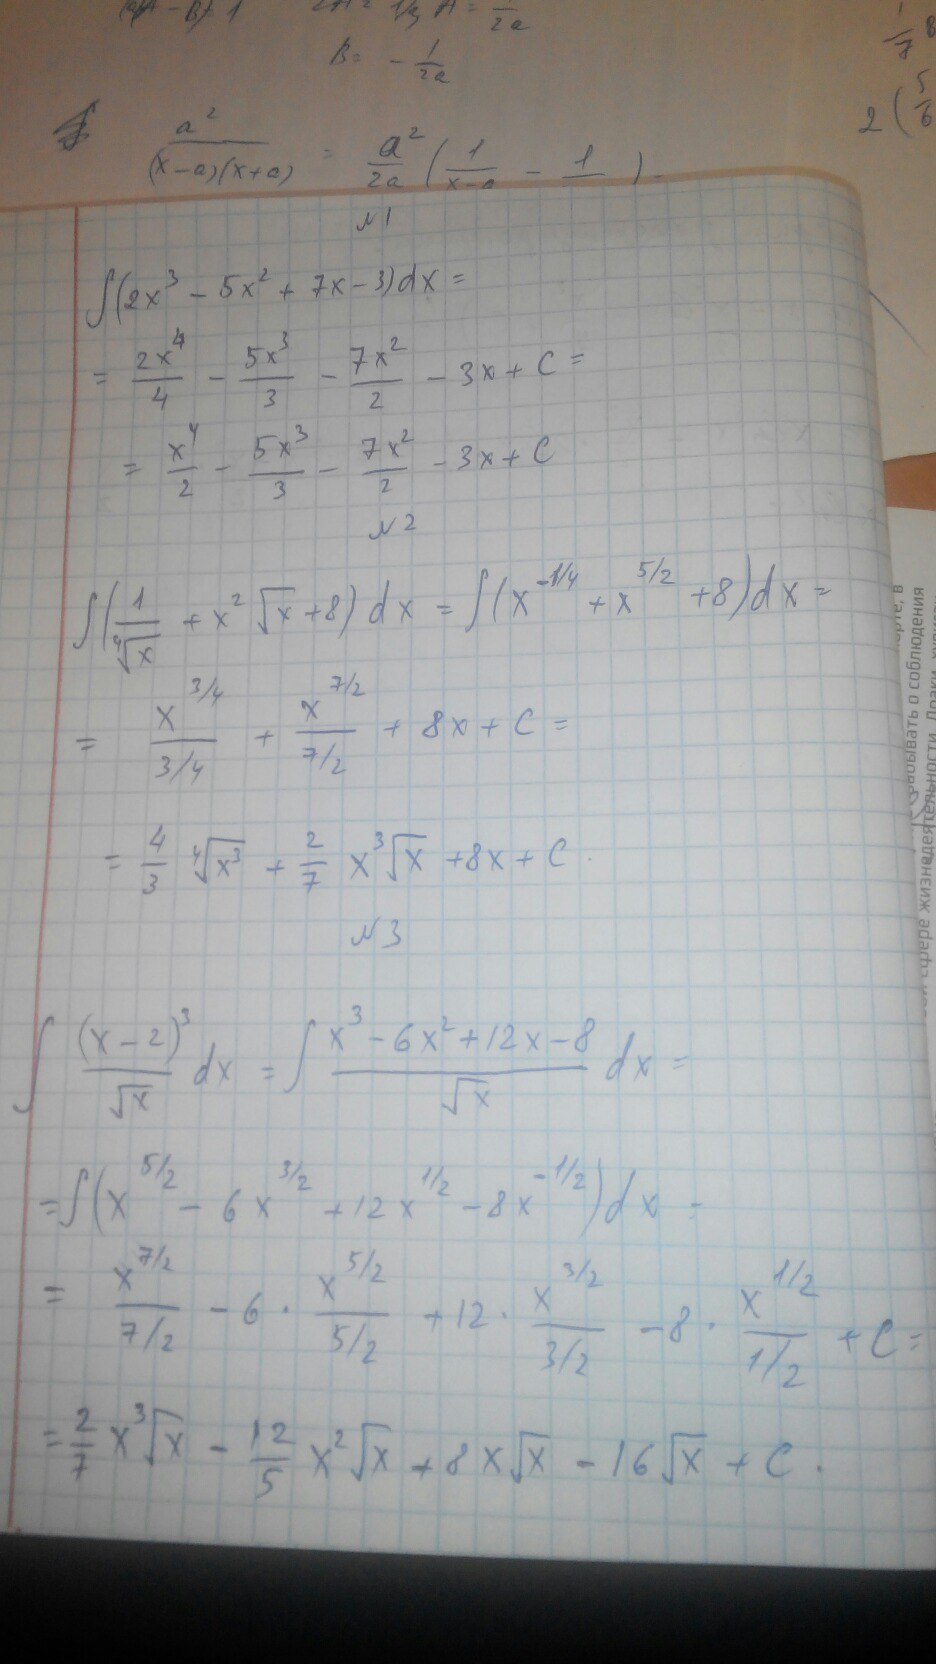 B = - 1/2a
a²/((x-a)(x+a)) = a²/2a (1/(x-a) - 1
2 (5/6
№1
∫(2x³ - 5x² + 7x - 3)dx =
= 2x⁴/4 - 5x³/3 - 7x²/2 - 3x + C =
= x⁴/2 - 5x³/3 - 7x²/2 - 3x + C
№2
∫(1/⁴√x + x² √x + 8) dx = ∫(x^(-1/4) + x^(5/2) + 8)dx =
= x^(3/4)/(3/4) + x^(7/2)/(7/2) + 8x + C =
= 4/3 ⁴√x³ + 2/7 x³√x + 8x + C.
№3
∫ (x-2)³/√x dx = ∫ (x³ - 6x² + 12x - 8)/√x dx =
= ∫(x^(5/2) - 6x^(3/2) + 12x^(1/2) - 8x^(-1/2))dx =
= x^(7/2)/(7/2) - 6 · x^(5/2)/(5/2) + 12 · x^(3/2)/(3/2) - 8 · x^(1/2)/(1/2) + C =
= 2/7 x³√x - 12/5 x²√x + 8x√x - 16√x + C.
забывать о соблюдения
сфере жизнедеятельности. Драки